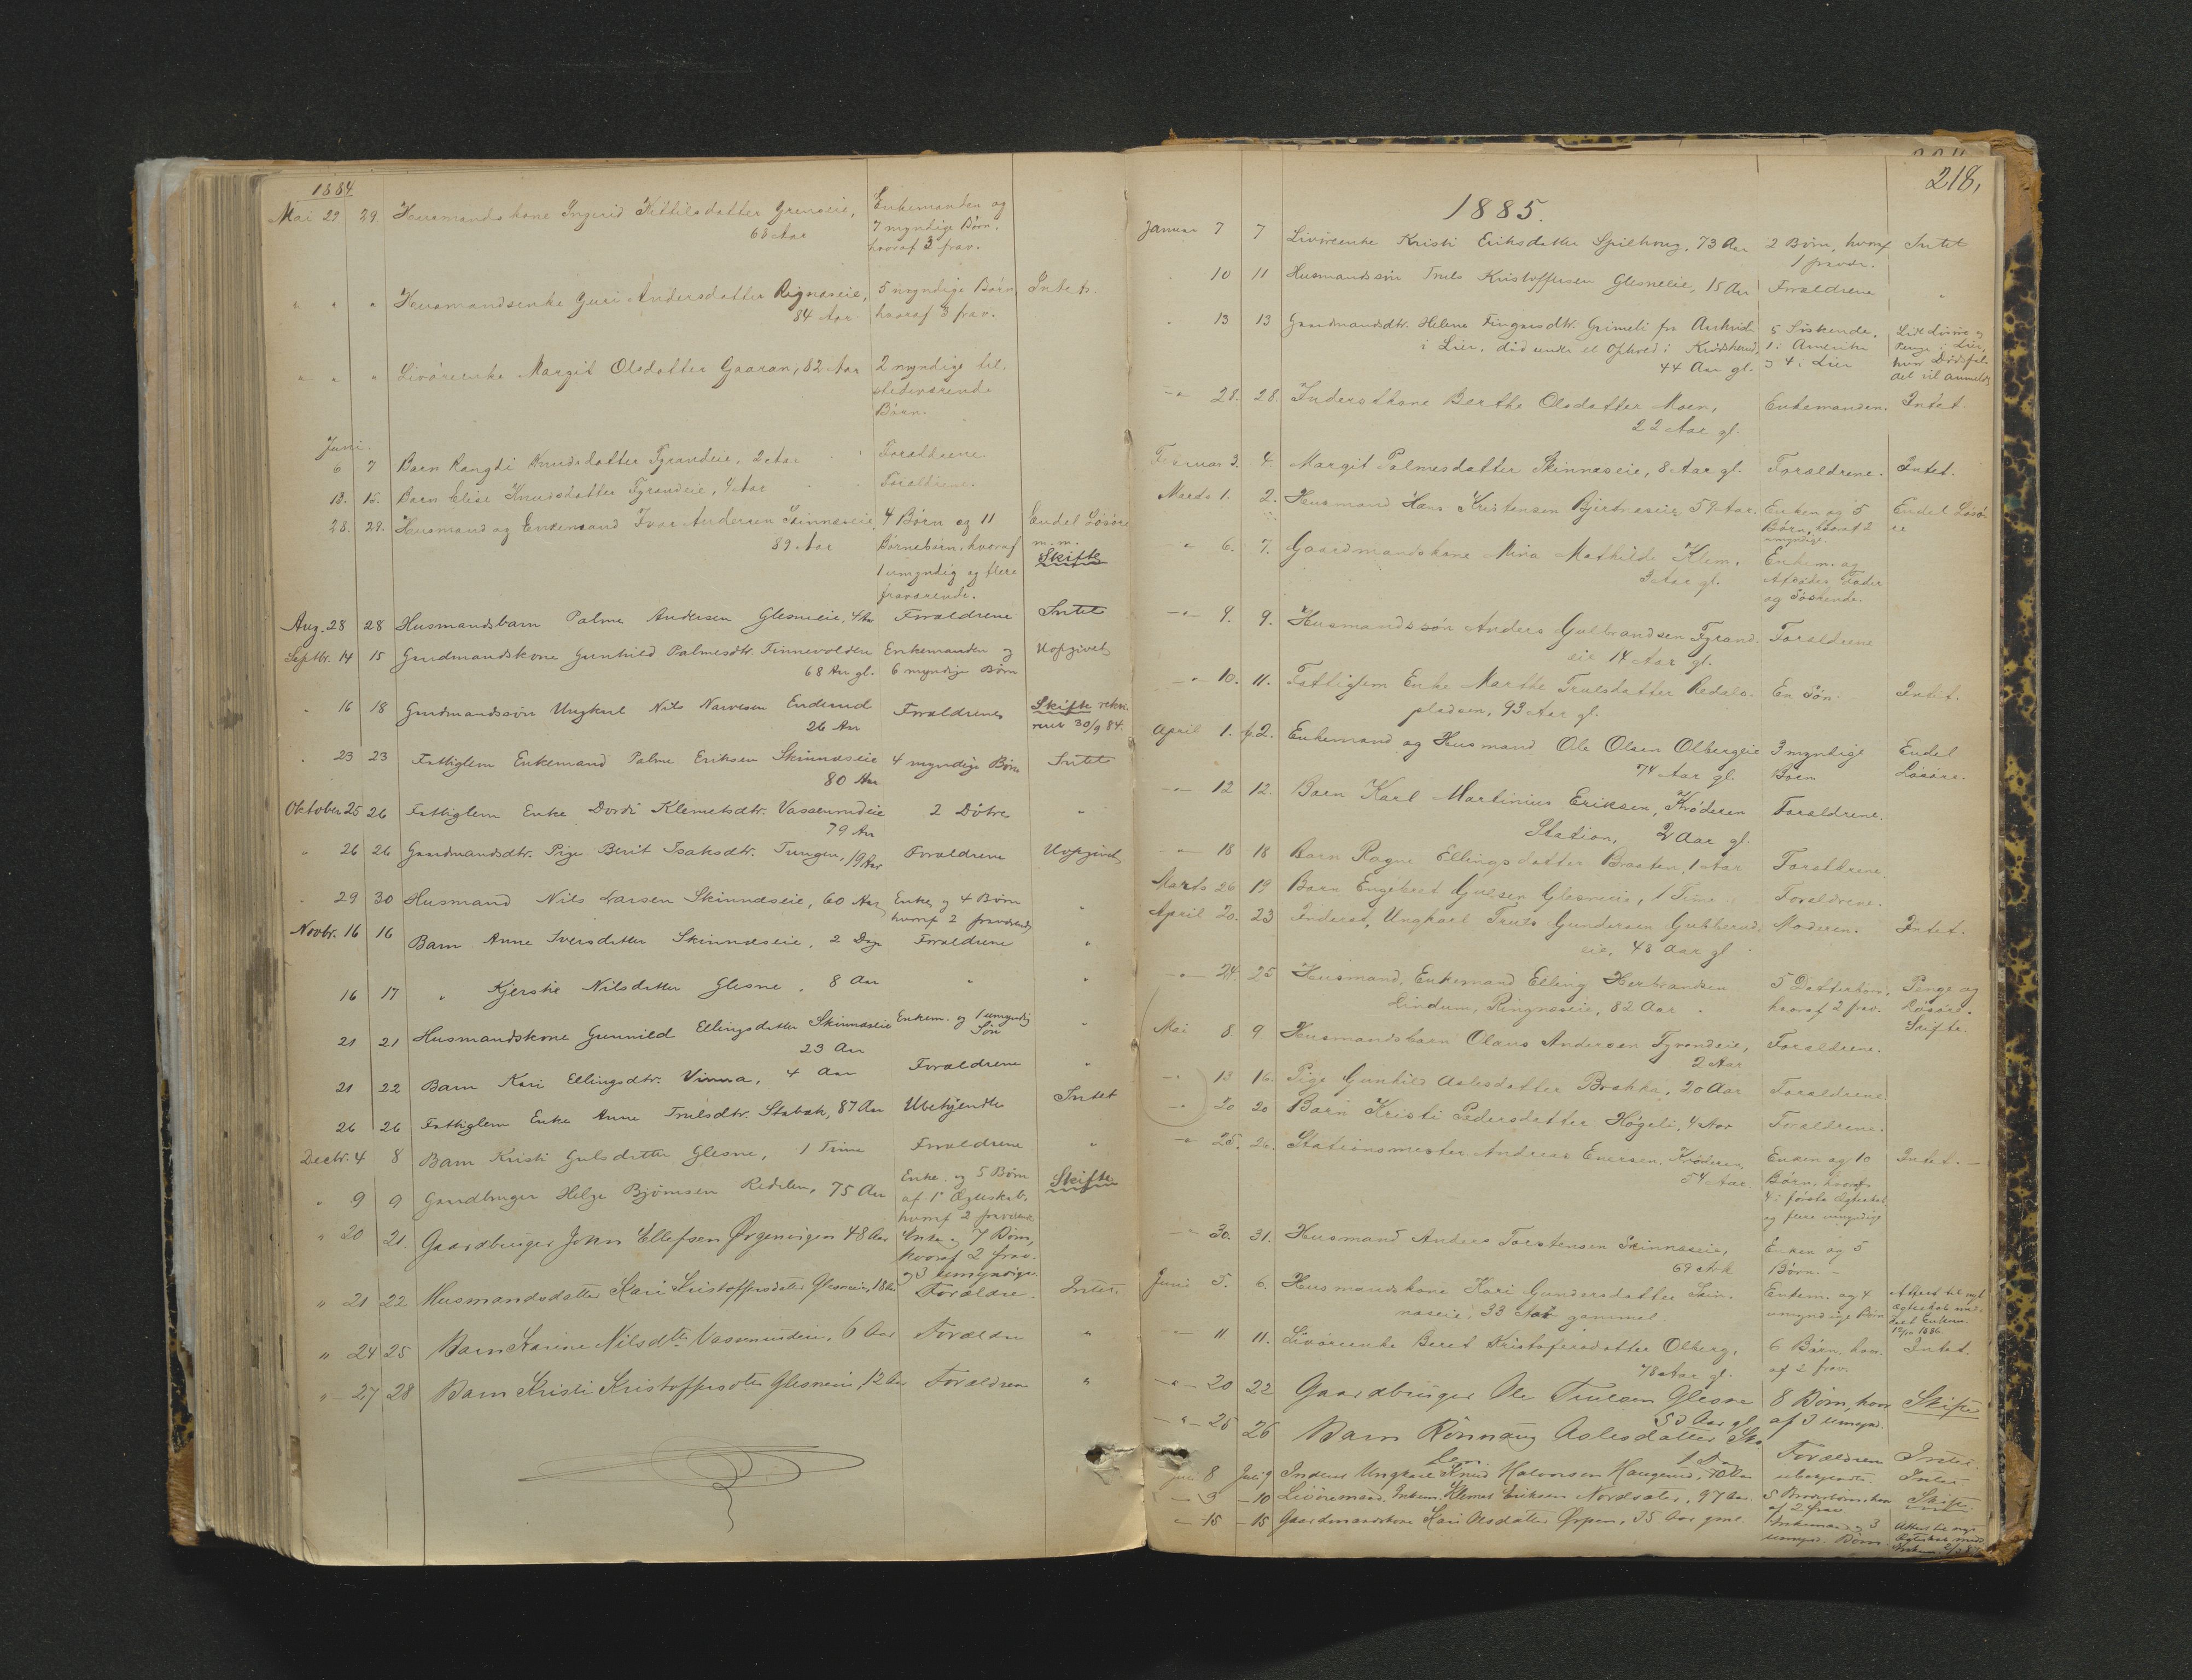 1884
Mai 29 29. Husmandskone Ingerid Kittilsdatter Grenseie, Enkemanden og
68 Aar 7 myndige Børn.
hvoraf 3 frav.
" " " Husmandsenke Guri Andersdatter Rignæseie, 5 myndige Børn, Intet.
84 Aar hvoraf 3 frav.
" " " Livöreenke Margit Olsdatter Gaaran, 82 Aar 2 myndige til-
stedeværende
Børn.
Juni.
6 7 Barn Rangdi Knudsdatter Fyrandeie, 2 Aar Forældrene
13. 15. Barn Elise Knudsdatter Fyrandeie, 4 Aar Forældrene.
28. 29. Husmand og Enkemand Ivar Andersen Skinnæseie, 4 Børn og 11 Endel Løsøre
89 Aar Børnebørn, hvoraf m. m.
1 umyndig og flere Skifte
fraværende.
Aug. 28 28 Husmandsbarn Palme Andersen Glesneeie, 4 Aar Forældrene Intet
Septbr. 14 15 Gaardmandskone Gunhild Palmesdtr. Finnevolden Enkemanden og Uopgivet
68 Aar gl. 6 myndige Børn
" 16 18 Gaardmandssøn Ungkarl Nils Narvesen Enderud Forældrene Skifte rekvi-
26 Aar reret 30/9 84.
" 23 23 Fattiglem Enkemand Palme Eriksen Skinnæseie 4 myndige Børn Intet
80 Aar
Oktober 25 26 Fattiglem Enke Dordi Klemetsdtr. Vassenrudeie 2 Døtre "
79 Aar
" 26 26 Gaardmandsdtr. Pige Berit Isaksdtr. Tungen, 19 Aar Forældrene Uopgivet
" 29 30 Husmand Nils Larsen Skinnæseie, 60 Aar Enke og 4 Børn "
hvoraf 2 fraværende
Novbr. 16 16 Barn Anne Iversdatter Skinnæseie, 2 Dage Forældrene "
16 17 " Kjerstie Nilsdatter Glesne, 8 Aar " "
21 21 Husmandskone Gunnild Ellingsdatter Skinnæseie Enkem. og 1 umyndig "
23 Aar Søn
21 22 Barn Kari Ellingsdtr. Vinna, 4 Aar Forældrene "
26 26 Fattiglem Enke Anne Trulsdtr. Stabæk, 87 Aar Ubekjendte Intet
Decbr. 4 8 Barn Kristi Gulsdatter Glesne, 1 Time Forældrene "
" 9 9 Gaardbruger Helge Bjørnsen Redalen, 75 Aar Enke. og 5 Børn Skifte
af 1' Ægteskab,
hvoraf 2 fraværende
" 20 21. Gaardbruger John Ellefsen Ørgenvigen 48 Aar Enke og 7 Børn,
hvoraf 2 frav.
og 3 umyndige.
" 21 22 Husmandsdatter Kari Kristoffersdatter Glesneeie, 18 Aar Forældre. Intet.
" 24 25 Barn Karine Nilsdtr. Vassenrudeie, 6 Aar Forældre "
" 27 28 Barn Kristi Kristoffersdtr Glesneeie, 12 Aar Forældrene "
218,
1885.
Januar 7 7 Livöreenke Kristi Eriksdatter Spilhaug, 73 Aar 2 Børn, hvoraf Intet
1 fravær.
" 10 11 Husmandssøn Truls Kristoffersen Glesneeie, 15 Aar Forældrene "
" 13 13 Gaardmandsdtr. Helene Fingarsdtr. Grimeli fra 5 Søskende,
i Lier, død under et Ophold i Krødsherad, 1 i Amerika
44 Aar gl. og 4 i Lier
Lidt Løsøre og
Penge i Lier,
hvor Dødsfal-
det vil anmeldes
-"- 28. 28. Inderstkone Berthe Olsdatter Moen, Enkemanden. Intet.
22 Aar gl.
Februar 3. 4. Margit Palmesdatter Skinnæseie, 8 Aar gl. Forældrene. Intet.
Marts 1. 2. Husmand Hans Kristensen Bjertnæseie, 59 Aar. Enken og 5 Endel Løsø-
Børn, hvoraf 2 re
umyndige.
-"- 6. 7. Gaardmandskone Mina Mathilde Klem, Enkem. og
Aar gl. Afdødes Fader
og Søskende.
-"- 9. 9. Husmandssøn Anders Gulbrandsen Fyrand- Forældrene
eie 14 Aar gl.
-"- 10. 11. Fattiglem Enke Marthe Trulsdatter Redals- En Søn. Intet.
pladsen, 93 Aar gl.
April 1. 2. Enkemand og Husmand Ole Olsen Olbergeie 3 myndige Endel
74 Aar gl. Børn Løsøre.
-"- 12 12. Barn Karl Martinius Eriksen, Krøderen Forældrene.
Station, 2 Aar gl.
-"- 18 18 Barn Ragne Ellingsdatter Braaten, 1 Aar Forældrene.
Marts 26 19 Barn Engebret Gulsen Glesneeie, 1 Time Forældrene.
April 20. 23 Inderst, Ungkarl Truls Gundersen Gubberud- Moderen. Intet.
eie, 48 Aar gl
-"- 24. 25 Husmand, Enkemand Elling Herbrandsen 5 Datterbørn, Penge og
Lindum, Ringnæseie, 82 Aar. hvoraf 2 frav. Løsøre.
Skifte.
Mai 8 9 Husmandsbarn Olaus Andersen Fyrandeie, Forældrene.
2 Aar
-"- 13 16. Pige Gunhild Aslesdatter Brakka, 20 Aar Forældrene
-"- 20 20 Barn Kristi Pedersdatter Høgeli, 4 Aar Forældrene.
-"- 25. 26. Stationsmester Andreas Enersen, Krøderen, Enken og 10 Intet. —
54 Aar. Børn, hvoraf
4 i første Ægteskab
og flere umyndige
-"- 30. 31. Husmand Anders Torstensen Skinnæseie, Enken og 5
69 Aar Børn. -
Juni 5. 6. Husmandskone Kari Gundersdatter Skin- Enkem. og 4
næseie, 33 Aar gammel. umyndige Børn
Attest til nyt
Ægteskab med-
delt Enkem.
1886.
-"- 11. 11. Livöreenke Beret Kristofersdatter Olberg, 6 Børn, hvor- Intet.
78 Aar gl. af 2 frav.
-"- 20 22 Gaardbruger Ole Trulsen Glesne 8 Børn, hvor Skifte
53 Aar gl. af 3 umynd.
-"- 25 26 Barn Rønnaug Aslesdatter Forældrene Intet.
1 Dag
Juli 8 Juli 9 Inderst Ungkarl Knud Halvorsen Haugerud, 70 Aar ubekjendte. Intet
- 9 - 10 Livøremand, Enkem. Klemet Eriksen Nordsæter, 97 Aar. 5 Broderbørn, hvor Skifte
af 2 frav.
- 15 - 15 Gaardmandskone Kari Olsdatter Ørpen, 35 Aar gml. Enkemand og 3
umynd. Børn.
Attest til nyt
Ægteskab medd.
Enkem.